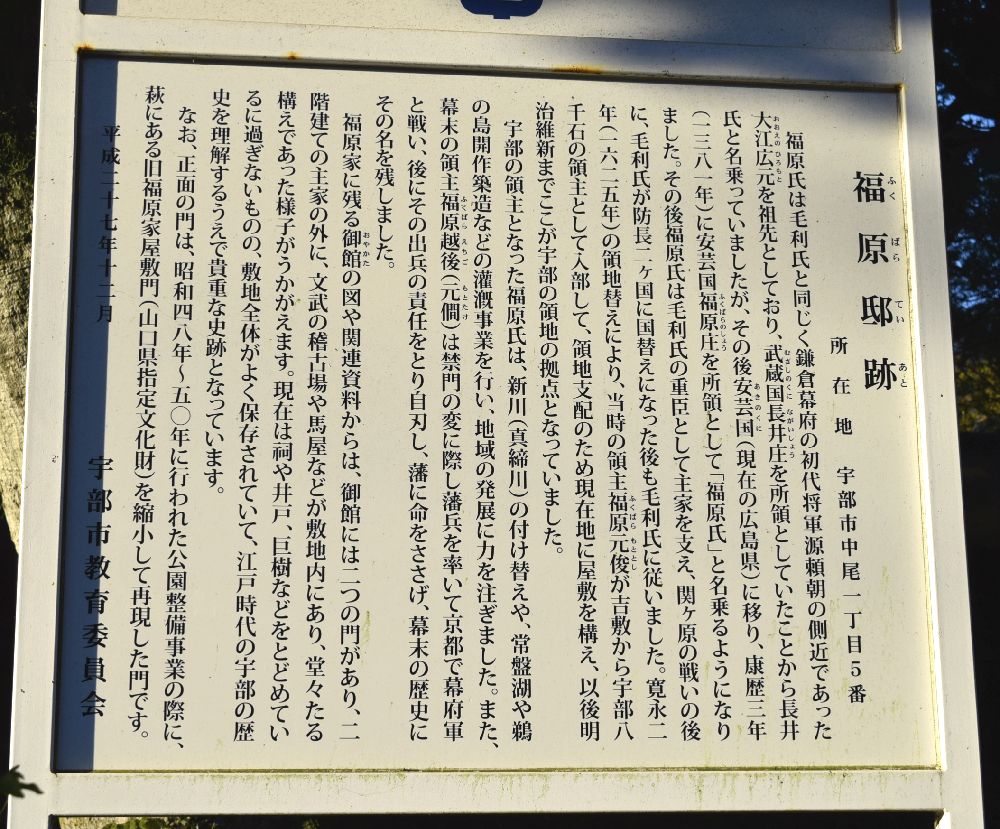 福原邸跡
所在地 宇部市中尾一丁目5番
福原氏は毛利氏と同じく鎌倉幕府の初代将軍源頼朝の側近であった
大江広元を祖先としており、武蔵国長井庄を所領としていたことから長井
氏と名乗っていましたが、その後安芸国(現在の広島県)に移り、康歴三年
(一三八一年)に安芸国福原庄を所領として「福原氏」と名乗るようになり
ました。その後福原氏は毛利氏の重臣として主家を支え、関ヶ原の戦いの後
に、毛利氏が防長二ヶ国に国替えになった後も毛利氏に従いました。寛永二
年(一六二五年)の領地替えにより、当時の領主福原元俊が吉敷から宇部八
千石の領主として入部して、領地支配のため現在地に屋敷を構え、以後明
治維新までここが宇部の領地の拠点となっていました。
宇部の領主となった福原氏は、新川(真締川)の付け替えや、常盤湖や鵜
の島開作築造などの灌漑事業を行い、地域の発展に力を注ぎました。また、
幕末の領主福原越後(元僴)は禁門の変に際し藩兵を率いて京都で幕府軍
と戦い、後にその出兵の責任をとり自刃し、藩に命をささげ、幕末の歴史に
その名を残しました。
福原家に残る御館の図や関連資料からは、御館には二つの門があり、二
階建ての主家の外に、文武の稽古場や馬屋などが敷地内にあり、堂々たる
構えであった様子がうかがえます。現在は祠や井戸、巨樹などをとどめてい
るに過ぎないものの、敷地全体がよく保存されていて、江戸時代の宇部の歴
史を理解するうえで貴重な史跡となっています。
なお、正面の門は、昭和四八年~五〇年に行われた公園整備事業の際に、
萩にある旧福原家屋敷門(山口県指定文化財)を縮小して再現した門です。
平成二十七年十二月 宇部市教育委員会